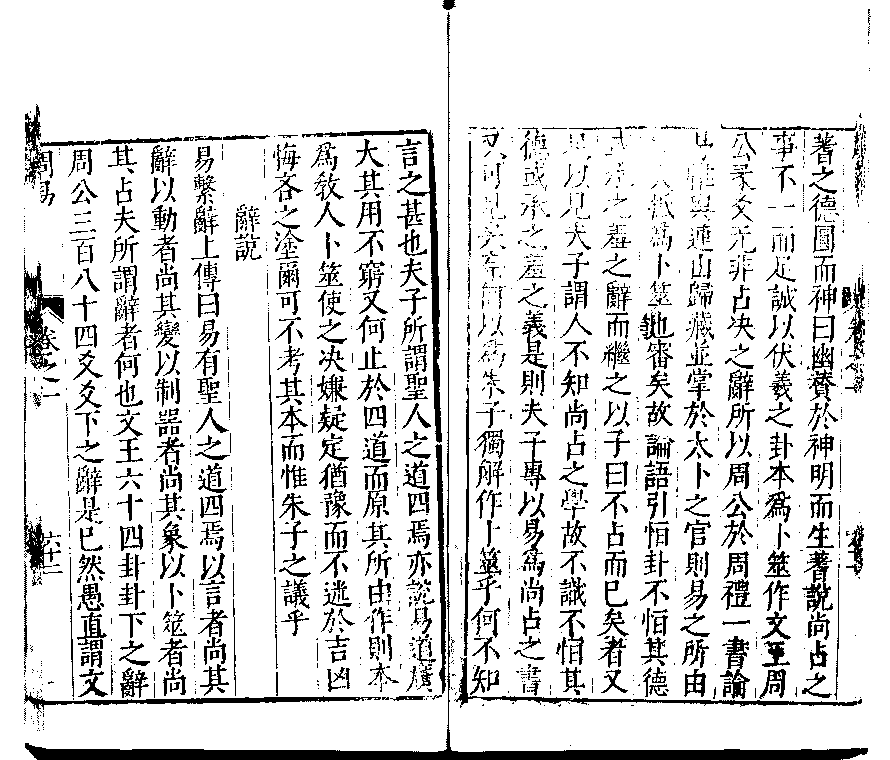 蓍之德圓而神曰幽贊於神明而生蓍說尚占之
事不一而足誠以伏羲之卦本爲卜筮作文王周
公彖爻无非占决之辭所以周公於周禮一書論
易雖與連山歸藏並掌於太卜之官則易之所由
爲卜筮也審矣故論語引恒卦不恒其德
或承之羞之辭而繼之以子曰不占而已矣者又
以見夫子謂人不知尚占之學故不識不恒其
德或承之羞之義是則夫子專以易爲尚占之書
又可見矣 何以爲朱子獨解作卜筮乎何不知
言之甚也夫子所謂聖人之道四焉亦說易道廣
大其用不窮又何止於四道而原其所由作則本
爲敎人卜筮使之决嫌疑定猶豫而不迷於吉凶
悔吝之塗爾可不考其本而惟朱子之議乎
辭說
易繫辭上傳曰易有聖人之道四焉以言者尚其
辭以動者尚其變以制器者尚其象以卜筮者尚
其占夫所謂辭者何也文王六十四卦卦下之辭
周公三百八十四爻爻下之辭是已然愚直謂文
周易
卷之二
六十二